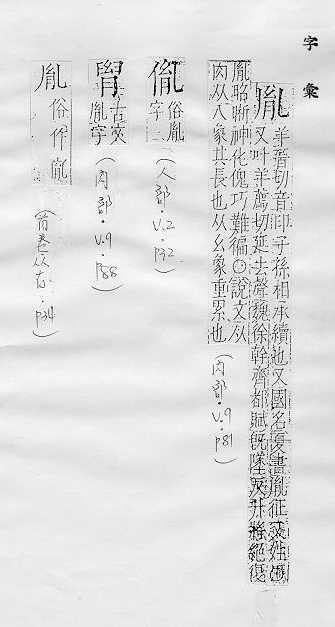 字彙
胤 羊晉切音印子孫相承續也又國名夏書胤征又姓
又叶羊 切延去聲魏徐幹齊都賦旣墜反升將絕復
胤昭晣神化傀巧難徧〇說文从
肉从八象其長也从幺象重累也(肉部.V.9.P81)
㑞 俗胤字(人部.V.2.P32)
古文胤字(肉部.V.9.P88)
胤 俗作